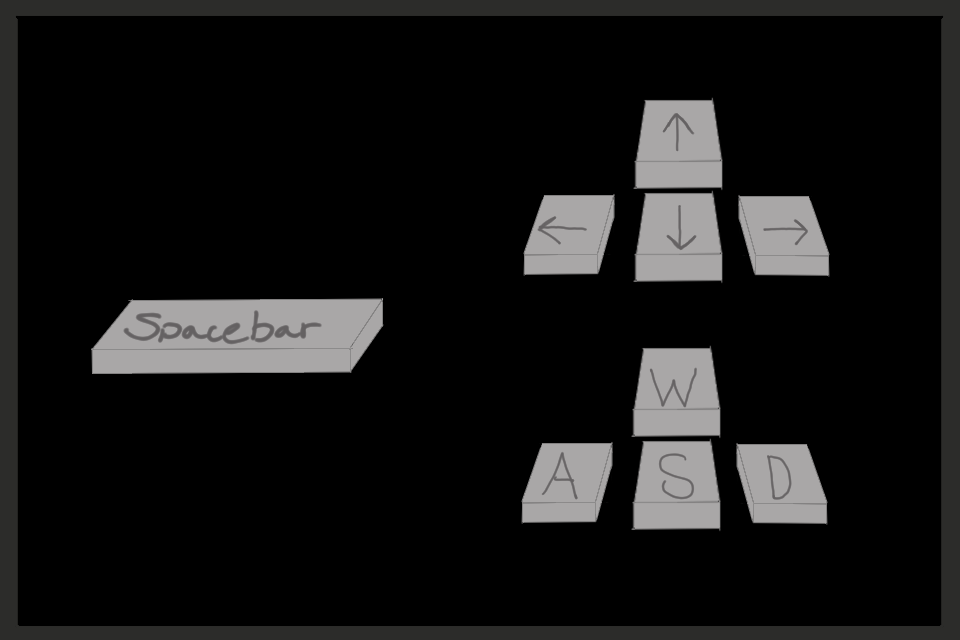 ↑
← ↓ →
Spacebar
W
A S D